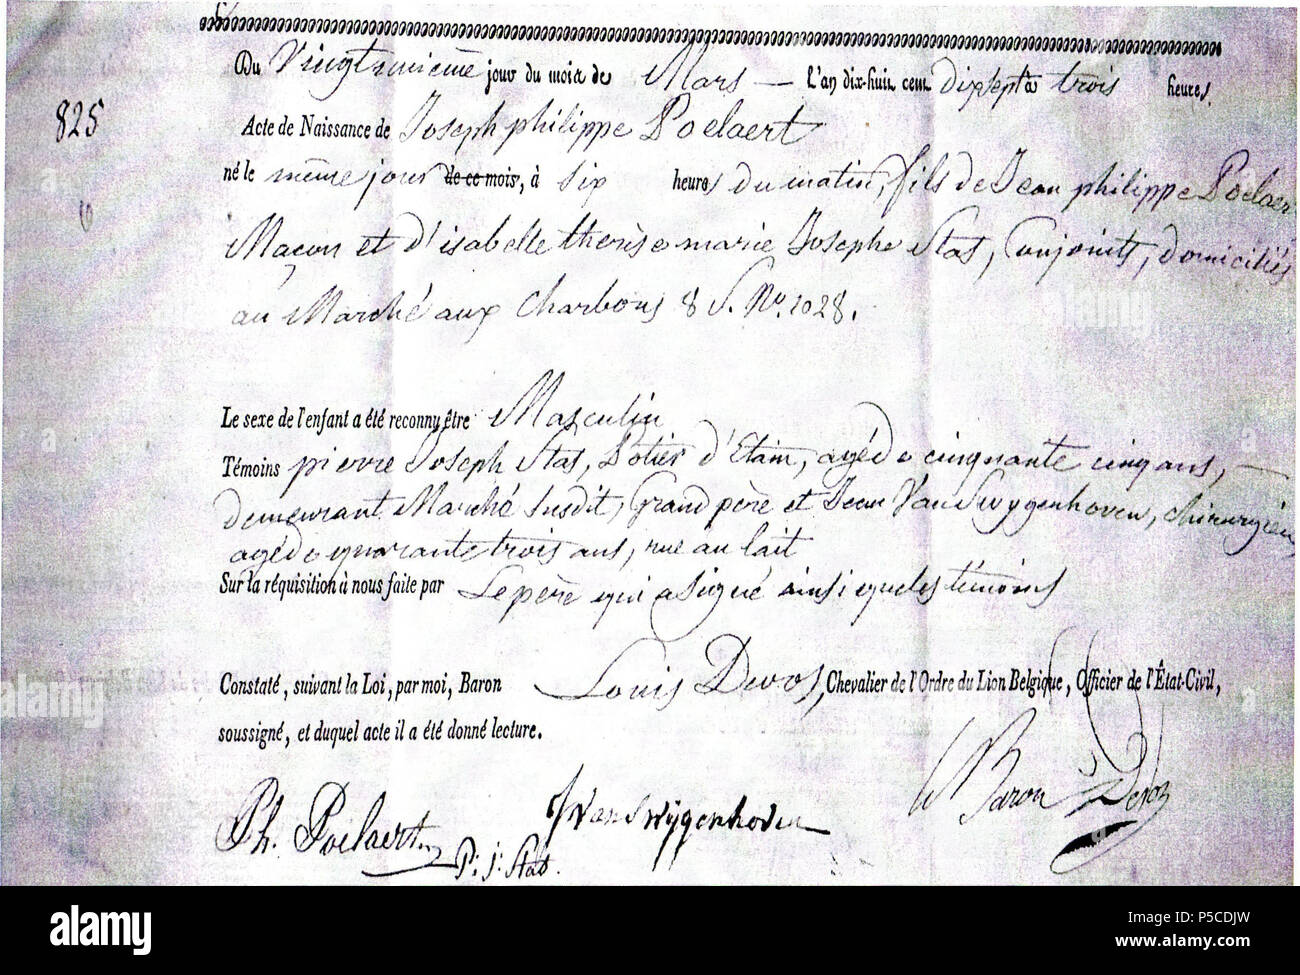 Du Vingtunième jour du mois de Mars — L'an dix-huit cent dixsept à trois heures.
825
Acte de Naissance de Joseph philippe Poelaert
né le même jour de ce mois, à six heures du matin, fils de Jean philippe Poelaer
Maçon et d'isabelle therèse marie Josephe Stas, Conjoints, domiciliés
au Marché aux Charbons 8 S. No. 1028.
Le sexe de l'enfant a été reconnu être Masculin
Témoins pierre Joseph Stas, Potier d'Etain, agé de cinquante cinq ans, —
demeurant Marché susdit, Grand père et Jean Van Swygenhoven, chirurgien
agé de quarante trois ans, rue au lait
Sur la réquisition à nous faite par Le père qui a Signé ainsi que les témoins
Constaté, suivant la Loi, par moi, Baron Louis Devos, Chevalier de l'Ordre du Lion Belgique, Officier de l'État-Civil,
soussigné, et duquel acte il a été donné lecture.
Ph. Poelaert
P: j: Stas.
J Van Swygenhoven
Baron Devos
alamy
alamy
Image ID: P5CDJW
www.alamy.com